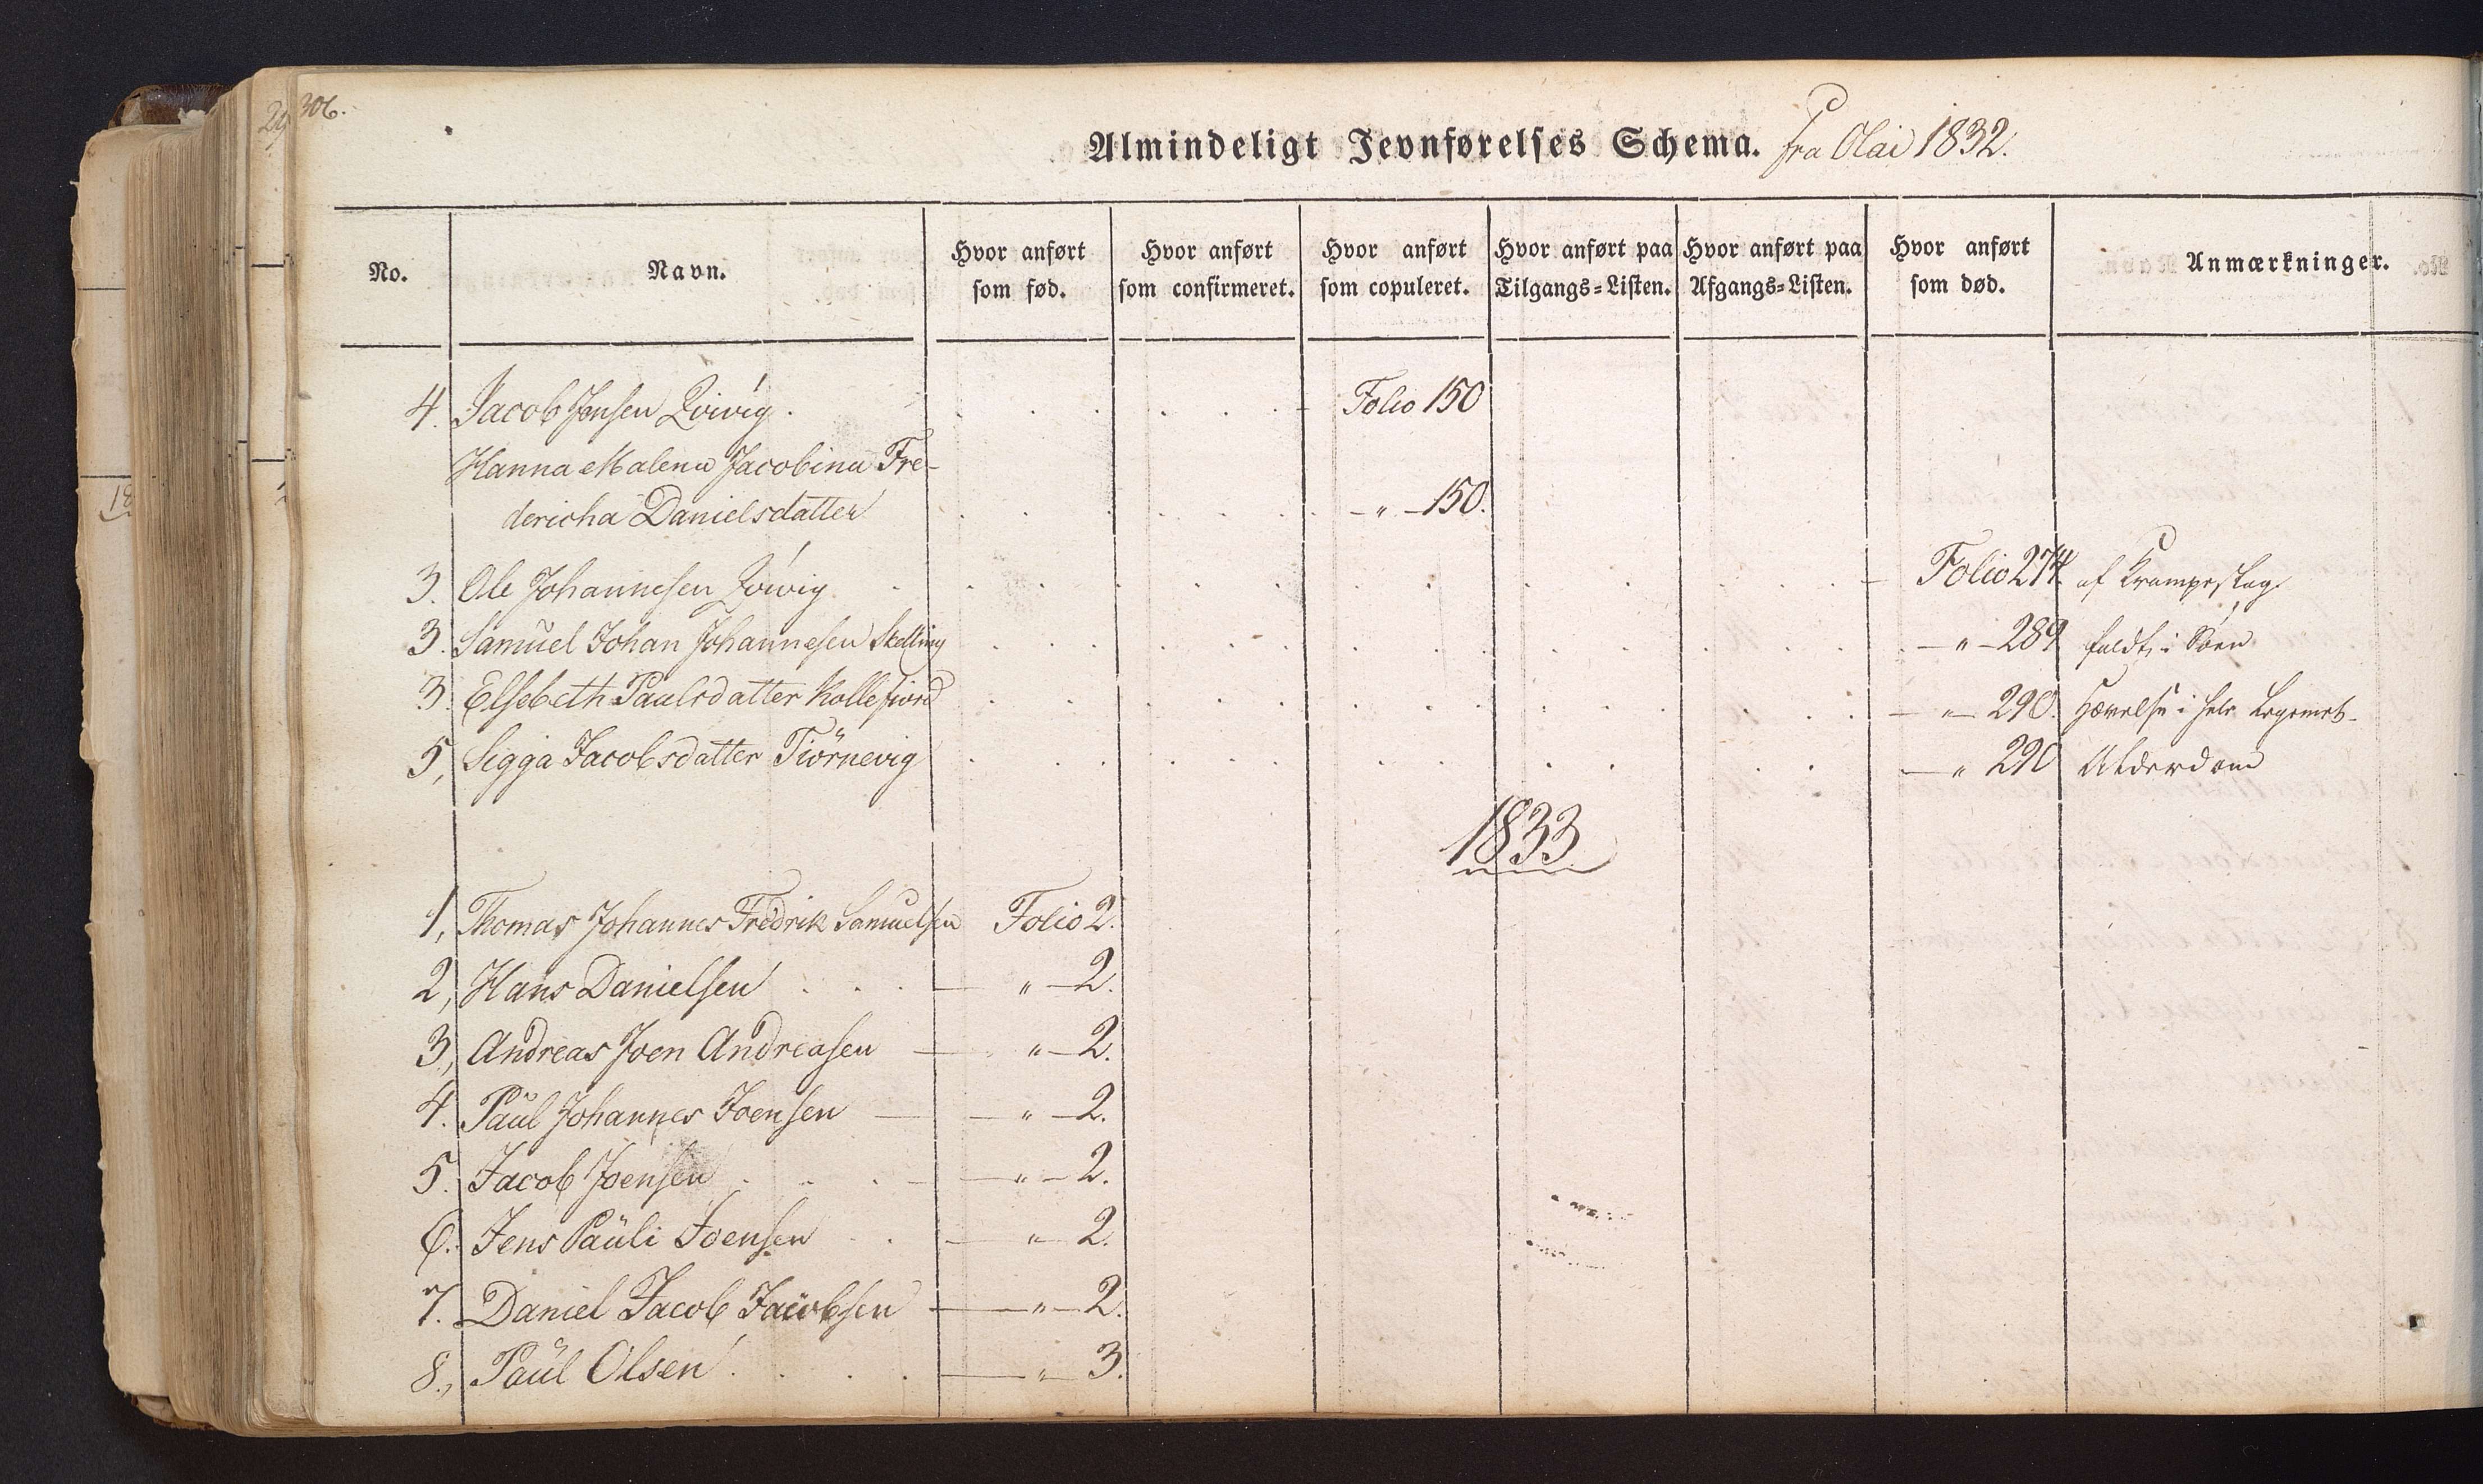 306.
Almindeligt Jevnførelses Schema. fra Olai 1832.
No. Navn. Hvor anført som fød. Hvor anført som confirmeret. Hvor anført som copuleret. Hvor anført paa Tilgangs=Listen. Hvor anført paa Afgangs=Listen. Hvor anført som død. Anmærkninger.
4. Jacob Jensen Qvivig . Folio 150
Hanna Malena Jacobina Fre-
dericha Danielsdatter — " — 150.
3. Ole Johannesen Qvivig Folio 274. af Krampeslag
3. Samuel Johan Johannesen Skelling — " — 289 faldt i Søen
3. Elsebeth Paulsdatter Kollefiord — " — 290. Hævelse i hele Legemet
5, Sigga Jacobsdatter Tiörnevig — " 290 Alderdom
1833
1, Thomas Johannes Fredrik Samuelsen Folio 2.
2, Hans Danielsen — " — 2.
3, Andreas Joen Andreasen — " — 2.
4. Paul Johannes Joensen — " — 2.
5. Jacob Joensen — " — 2.
6. Jens Pauli Joensen — " — 2.
7. Daniel Jacob Jacobsen — " — 2.
8., Paul Olsen — " — 3.